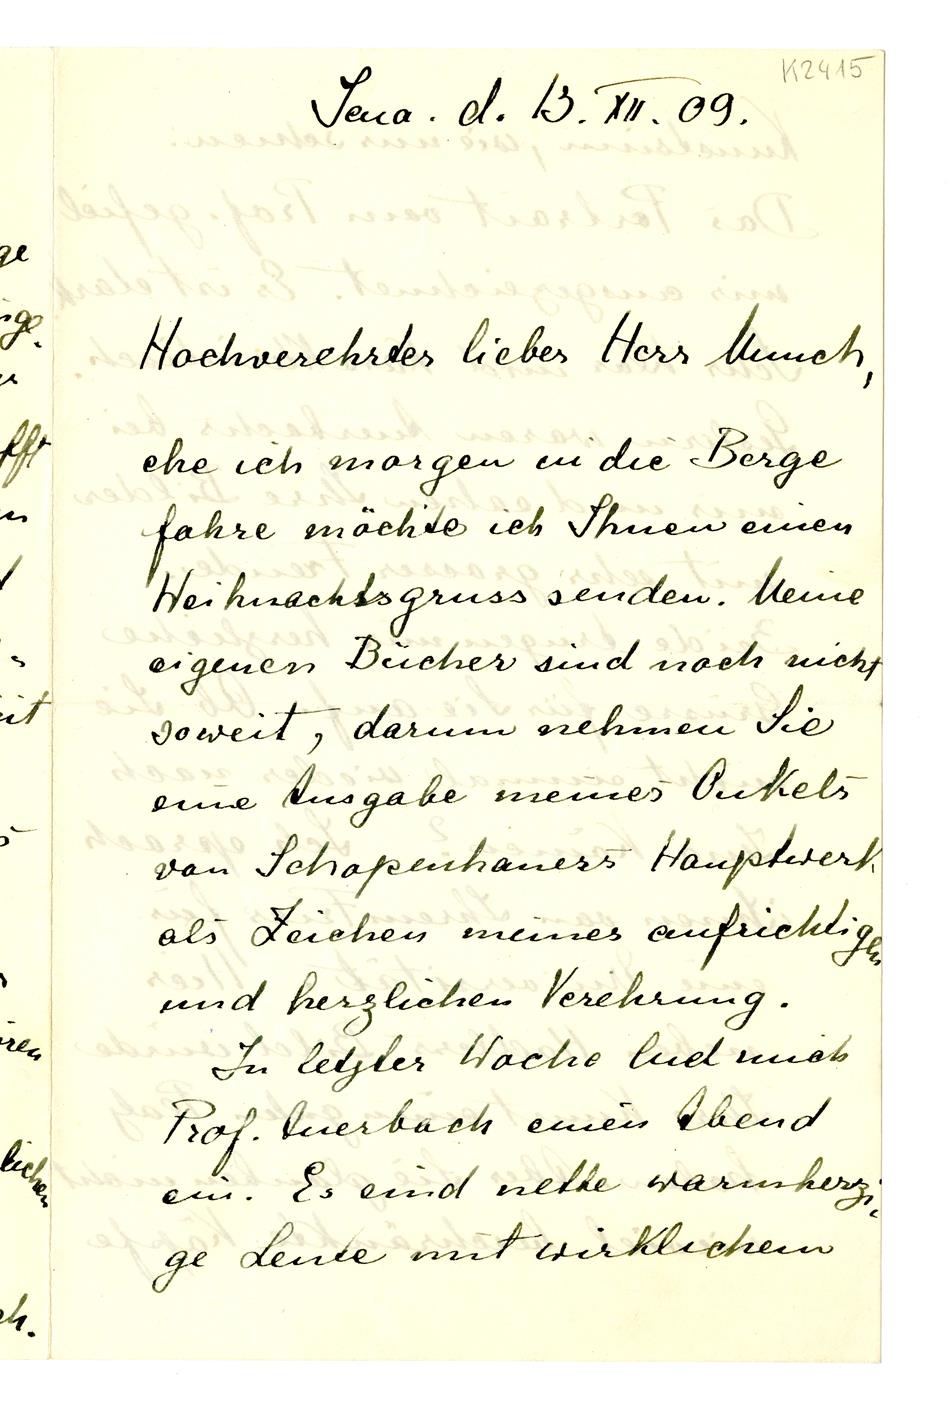 K2415
Jena. d. 13. XII. 09.
Hochverehrter lieber Herr Munch,
ehe ich morgen in die Berge
fahre möchte ich Ihnen einen
Weihnachtsgruss senden. Meine
eigenen Bücher sind noch nicht
soweit, darum nehmen Sie
eine Ausgabe meines Onkels
von Schopenhauers Hauptwerk
als Zeichen meiner aufrichtigen
und herzlichen Verehrung.
In letzter Woche lud mich
Prof. Auerbach einen Abend
ein. Es sind nette warmherzi-
ge Leute mit wirklichem